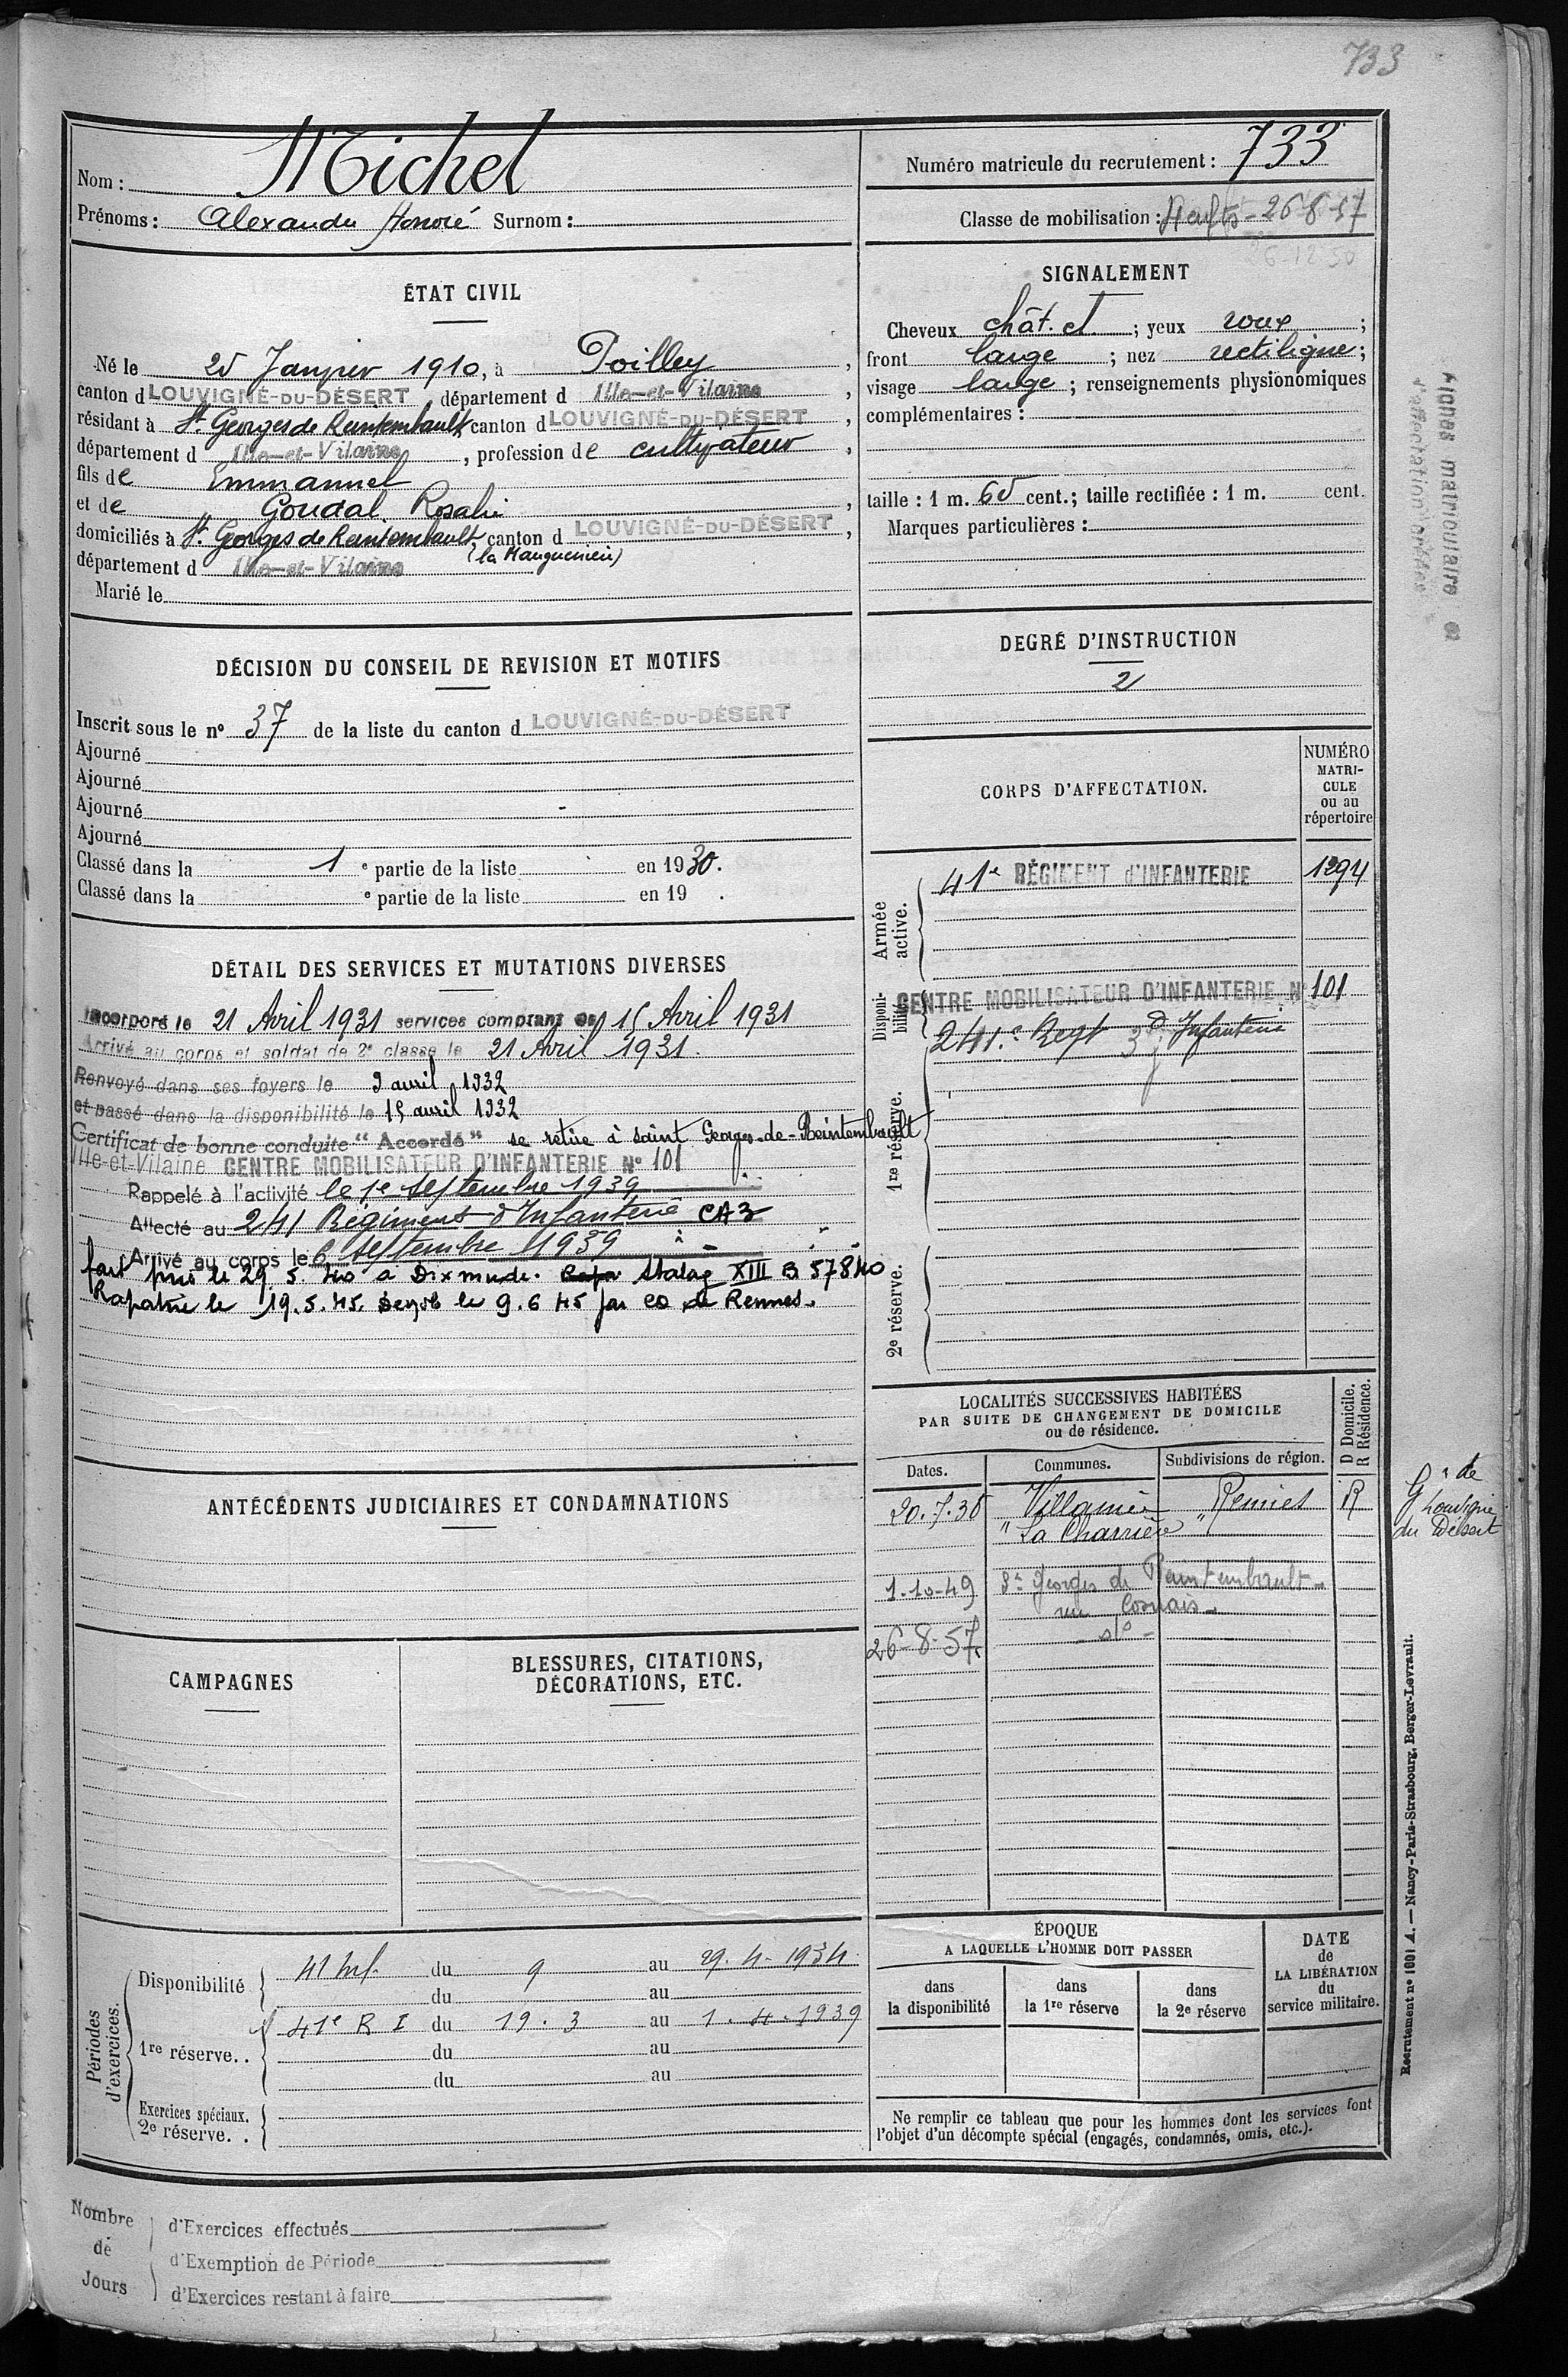 733
Nom : Michel
Prénoms : Alexandre Honoré Surnom :
Numéro matricule du recrutement : 733
Classe de mobilisation : 26-8-57
26-12-50
ÉTAT CIVIL
Né le 25 Janvier 1910, à Poilley,
canton d LOUVIGNÉ-DU-DÉSERT, département d Ille-et-Vilaine,
résidant à St. Georges de Reintembault canton d LOUVIGNÉ-DU-DÉSERT,
département d Ille-et-Vilaine, profession de cultivateur,
fils de Emmanuel
et de Goudal Rosalie,
domiciliés à St. Georges de Reintembault, canton d LOUVIGNÉ-DU-DÉSERT,
département d Ille-et-Vilaine
Marié le
SIGNALEMENT
Cheveux chât. ; yeux roux ;
front large ; nez rectiligne ;
visage large ; renseignements physionomiques
complémentaires :
taille : 1 m. 65 cent.; taille rectifiée : 1 m. cent.
Marques particulières :
DÉCISION DU CONSEIL DE REVISION ET MOTIFS
Inscrit sous le nº 37 de la liste du canton d LOUVIGNÉ-DU-DÉSERT
Ajourné
Ajourné
Ajourné
Ajourné
Classé dans la 1 e partie de la liste en 1930.
Classé dans la e partie de la liste en 19 .
DEGRÉ D'INSTRUCTION
2
CORPS D'AFFECTATION.
NUMÉRO
MATRI-
CULE
ou au
répertoire
Armée
active.
41e RÉGIMENT d'INFANTERIE 1294
Disponi-
bilité
CENTRE MOBILISATEUR D'INFANTERIE Nº 101
241e Regt d'Infanterie
1re réserve.
2e réserve.
DÉTAIL DES SERVICES ET MUTATIONS DIVERSES
Incorporé le 21 Avril 1931 services comptant du 15 Avril 1931
Arrivé au corps et soldat de 2e classe le 21 Avril 1931.
Renvoyé dans ses foyers le 9 avril 1932
et passé dans la disponibilité le 15 avril 1932
Certificat de bonne conduite "Accordé" se retire à Saint Georges-de-Reintembault
Ille-et-Vilaine CENTRE MOBILISATEUR D'INFANTERIE Nº 101
Rappelé à l'activité le 1e septembre 1939
Affecté au 241 Régiment d'Infanterie CA3
Arrivé au corps le 6 septembre 1939
fait pris le 29.5.40 à Dixmude. Stalag XIII B 57840
Rapatrié le 19.5.45. le 9.6 45 par de Rennes.
ANTÉCÉDENTS JUDICIAIRES ET CONDAMNATIONS
LOCALITÉS SUCCESSIVES HABITÉES
PAR SUITE DE CHANGEMENT DE DOMICILE
ou de résidence.
D Domicile.
R Résidence.
Dates. Communes. Subdivisions de région.
20.7.35 Villamée Rennes R
"La Charrière"
Gie de
Louvigné
du Désert
1-10-49 St Georges de Reintembault
26-8-57 do
CAMPAGNES
BLESSURES, CITATIONS,
DÉCORATIONS, ETC.
Périodes
d'exercices.
Disponibilité
41 Inf. du 9 au 29.4.1934
du au
1re réserve..
41e R I du 19.3 au 1.4.1939
du au
du au
Exercices spéciaux.
2e réserve. .
ÉPOQUE
A LAQUELLE L'HOMME DOIT PASSER
dans
la disponibilité
dans
la 1re réserve
dans
la 2e réserve
DATE
de
LA LIBÉRATION
du
service militaire.
Ne remplir ce tableau que pour les hommes dont les services font
l'objet d'un décompte spécial (engagés, condamnés, omis, etc.).
Nombre
de
Jours
d'Exercices effectués
d'Exemption de Période
d'Exercices restant à faire
Recrutement nº 1601 A. — Nancy-Paris-Strasbourg, Berger-Levrault.